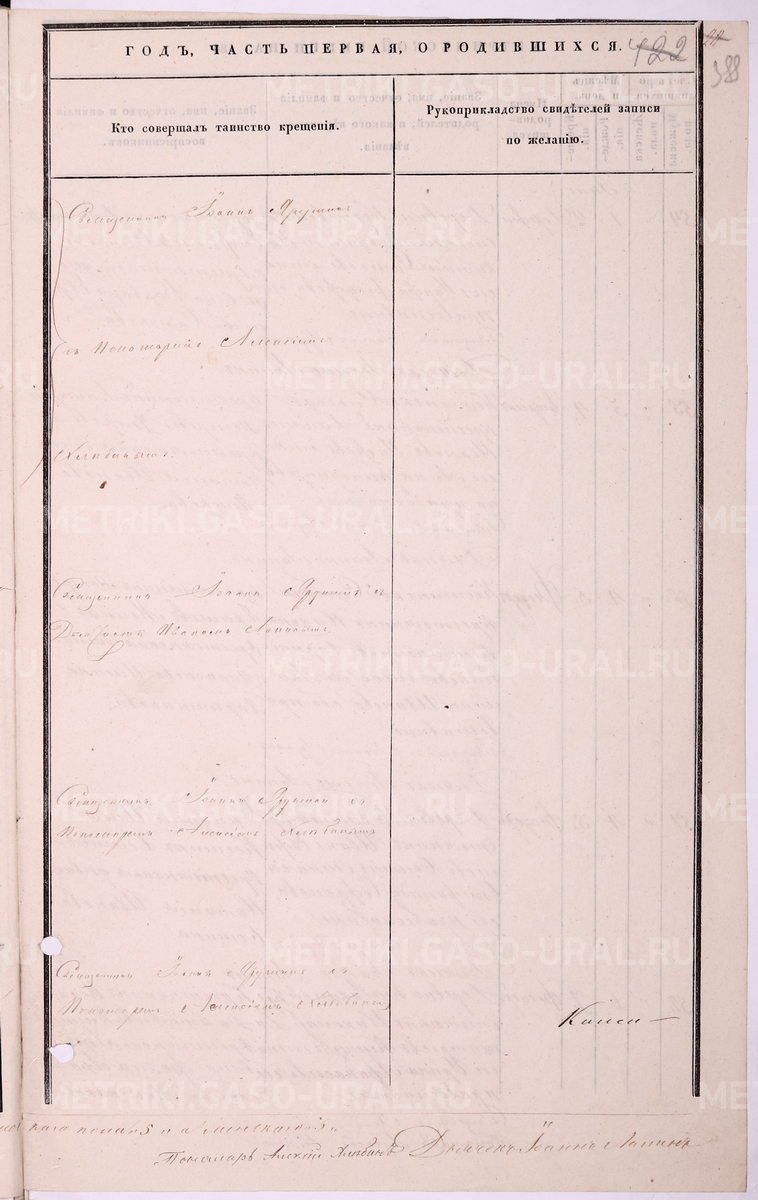 ГОДЪ, ЧАСТЬ ПЕРВАЯ, О РОДИВШИХСЯ.
422
388
Кто совершалъ таинство крещенія.
Рукоприкладство свидѣтелей записи
по желанію.
Священникъ Іоаннъ Ярушинъ
съ Пономаремъ Алексіемъ
Хлѣбинымъ.
Священникъ Іоаннъ Ярушинъ съ
Дьячкомъ Иваномъ Лапинымъ
Священникъ Іоаннъ Ярушинъ съ
Пономаремъ Алексіемъ Хлѣбинымъ
Священникъ Іоаннъ Ярушинъ съ
Пономаремъ Алексіемъ Хлѣбинымъ
Пономарь Алексій Хлѣбинъ Дьячекъ Іоаннъ Лапинъ
METRIKI.GASO-URAL.RU